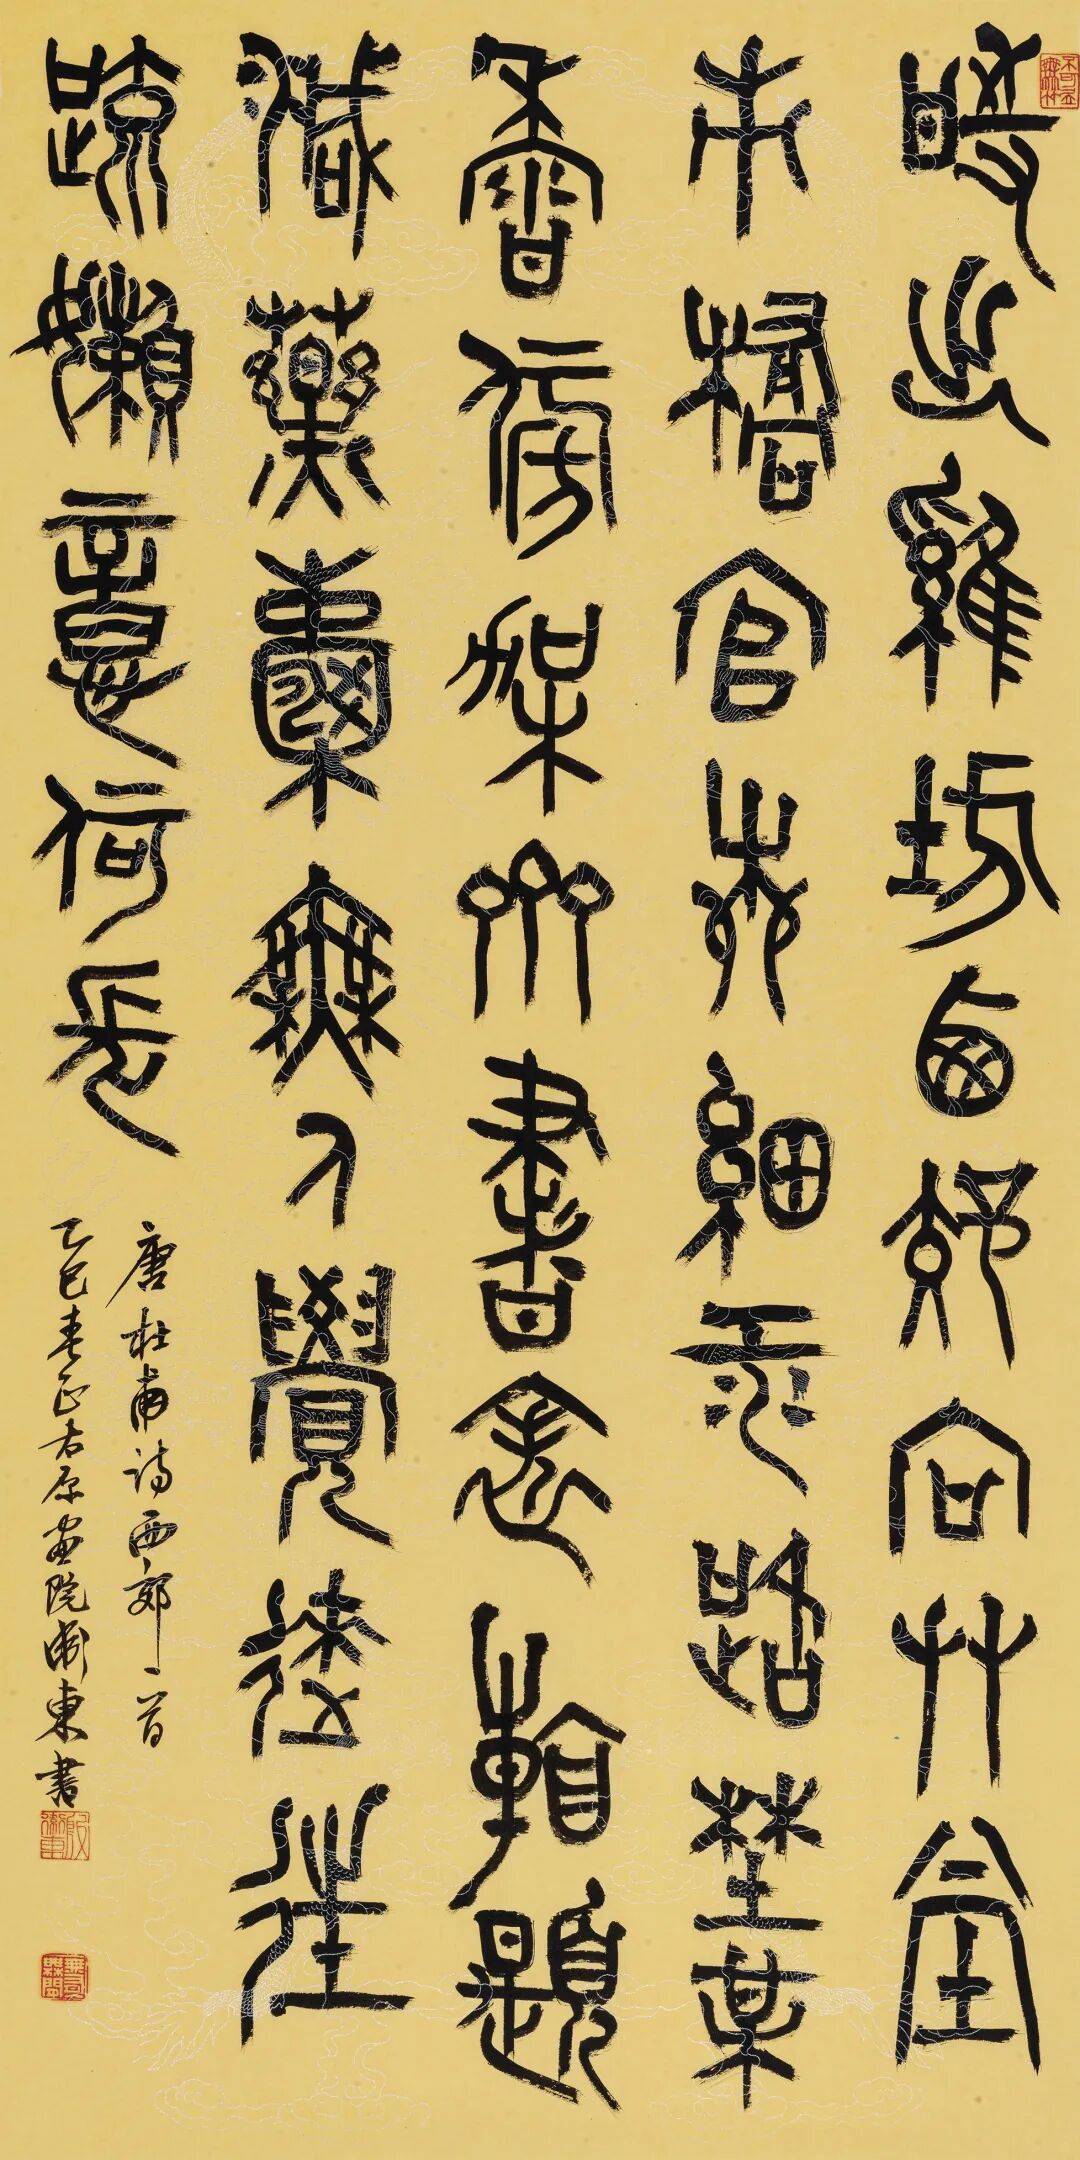 時出雞坊西郊向艸堂
市橋官柳細江路埜梅
香傍架齊書帙看題
減藥囊無人覺來往
疏嬾意何長
唐杜甫詩西郊一首
乙巳春正古原畫院衛東書